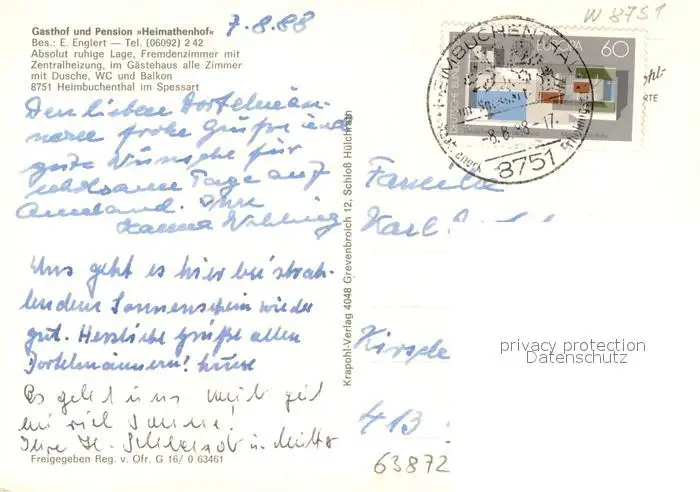 7.8.88
W 8751
Gasthof und Pension »Heimathenhof«
Bes.: E. Englert — Tel. (06092) 2 42
Absolut ruhige Lage, Fremdenzimmer mit
Zentralheizung, im Gästehaus alle Zimmer
mit Dusche, WC und Balkon
8751 Heimbuchenthal im Spessart
Den lieben Dortelmän-
nern frohe Grüße und
gute Wünsche für
erholsame Tage auf
Ameland. Ihre
Hanna
Uns geht es hier bei strah-
lendem Sonnenschein wieder
gut. Herzliche Grüße allen
Dortelmännern!
Es geht uns weit gut
mit viel Sonne!
Ihre H. u. Mutter
Freigegeben Reg. v. Ofr. G 16/ 0 63461
Krapohl-Verlag 4048 Grevenbroich 12, Schloß Hülchrath
HEIMBUCHENTHAL
-8.8.88-17
8751
EUROPA 60
Familie
Karl
413
63872
privacy protection
Datenschutz